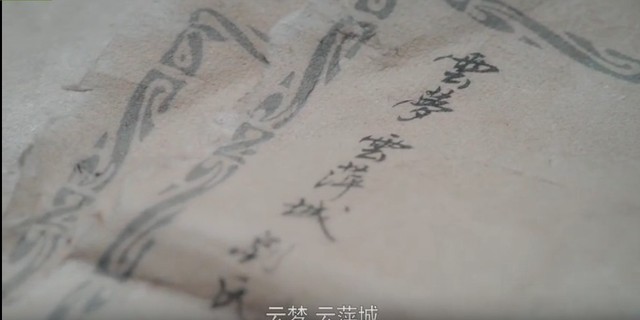 雲夢 雲萍城
云梦 云萍城